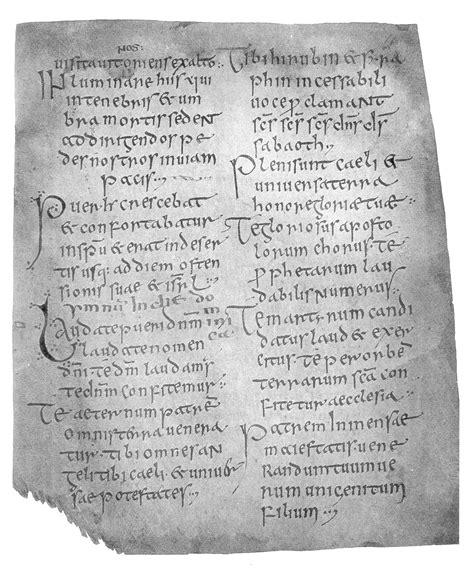 NOS:
uisitauit oriens exalto
Inluminare his qui
in tenebris & um
bra mortis sedent
ad dirigendos pe
des nostros in uiam
pacis
Puer h̄ crescebat
& confortabatur
in sp̄u & erat in deser
tis usq; ad diem osten
sionis suae & isrl̄
ymnum In die do
mi
Laudate pueri dn̄m ni
laudate nomen ca
dn̄i te dm̄ laudam;
te dn̄m confitemur
Te aeternum patrē
omnis terra uenera
tur tibi omnes an
geli tibi caeli & uniuer
sae potestates
Tibi hirubin & syra
phin incessabili
uoce p̱clamant
sc̄s sc̄s sc̄s dn̄s ds̄
sabaoth
Pleni sunt caeli &
uniuersa terra
honore gloriae tuae
Te gloriosus aposto
lorum chorus te
prophetarum lau
dabilis numerus
Te martyrum candi
datus laud& exer
citus te per orbē
terrarum sc̄a con
fitetur aecclesia
Patrem inmensae
maiestatis uene
randum tuum ue
rum unigenitum
filium